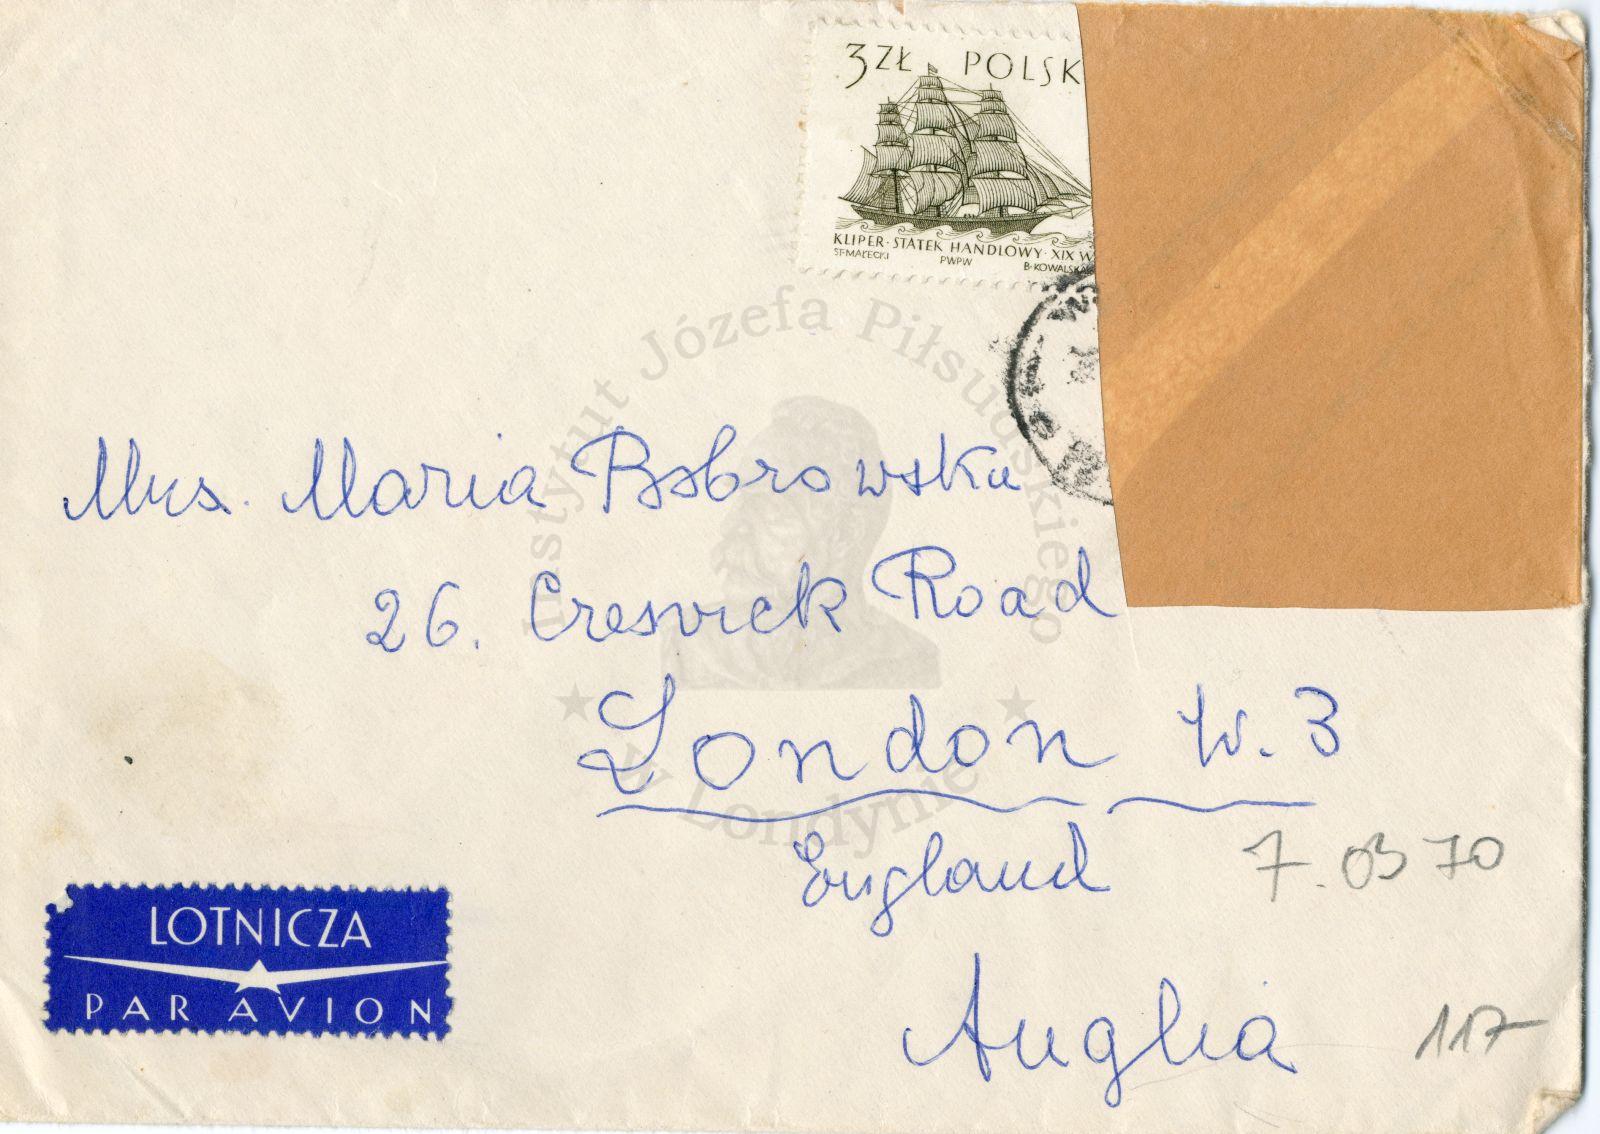 3 ZŁ POLSK
KLIPER · STATEK HANDLOWY · XIX W
ST·MAŁECKI PWPW B·KOWALSKA
Instytut Józefa Piłsudskiego
w Londynie
Mrs. Maria Bobrowska
26. Creswick Road
London W. 3
England
7.03 70
Anglia
117
LOTNICZA
PAR AVION